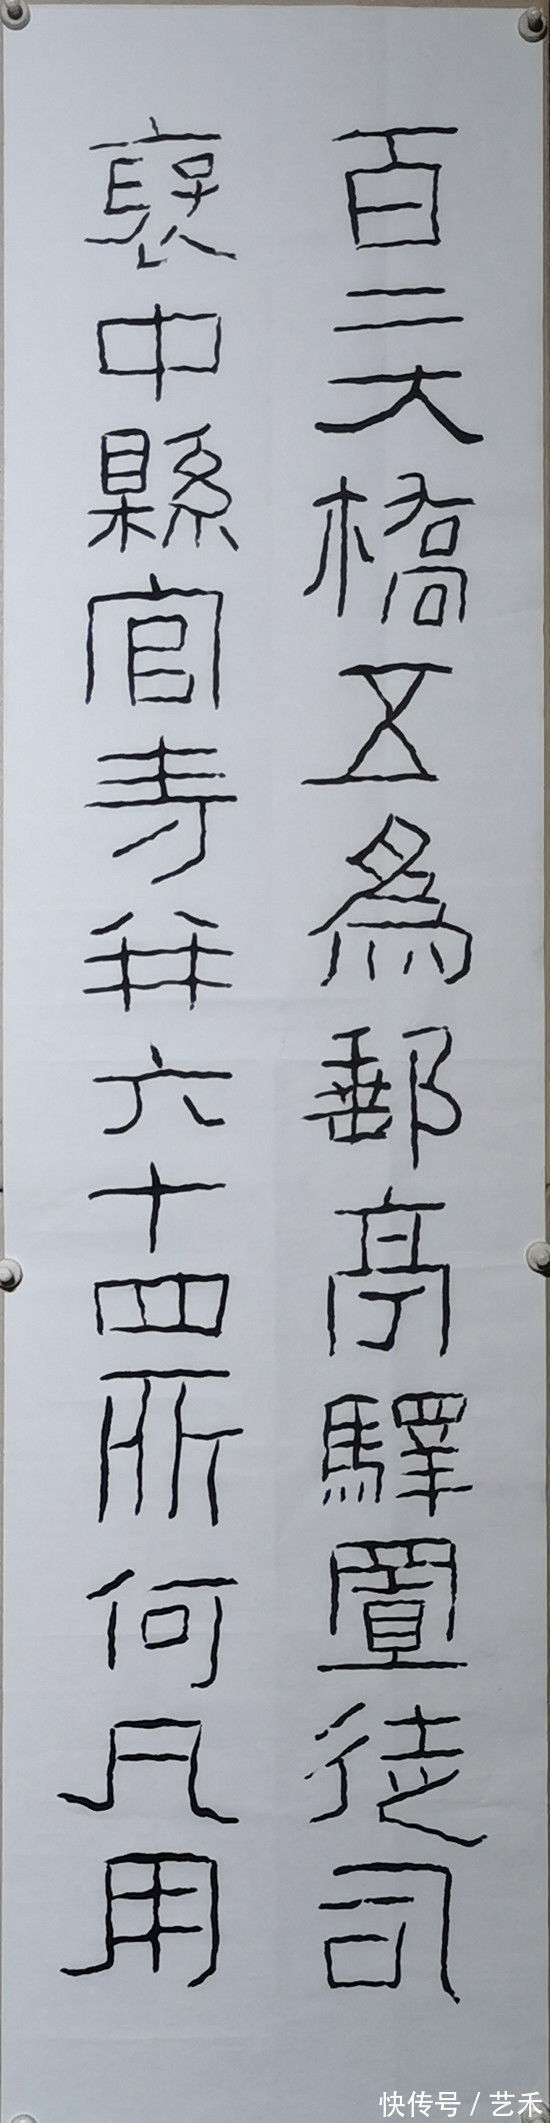 百二大橋五為郵亭驛置徒司
褒中縣官寺并六十四所何凡用
快传号 / 艺禾